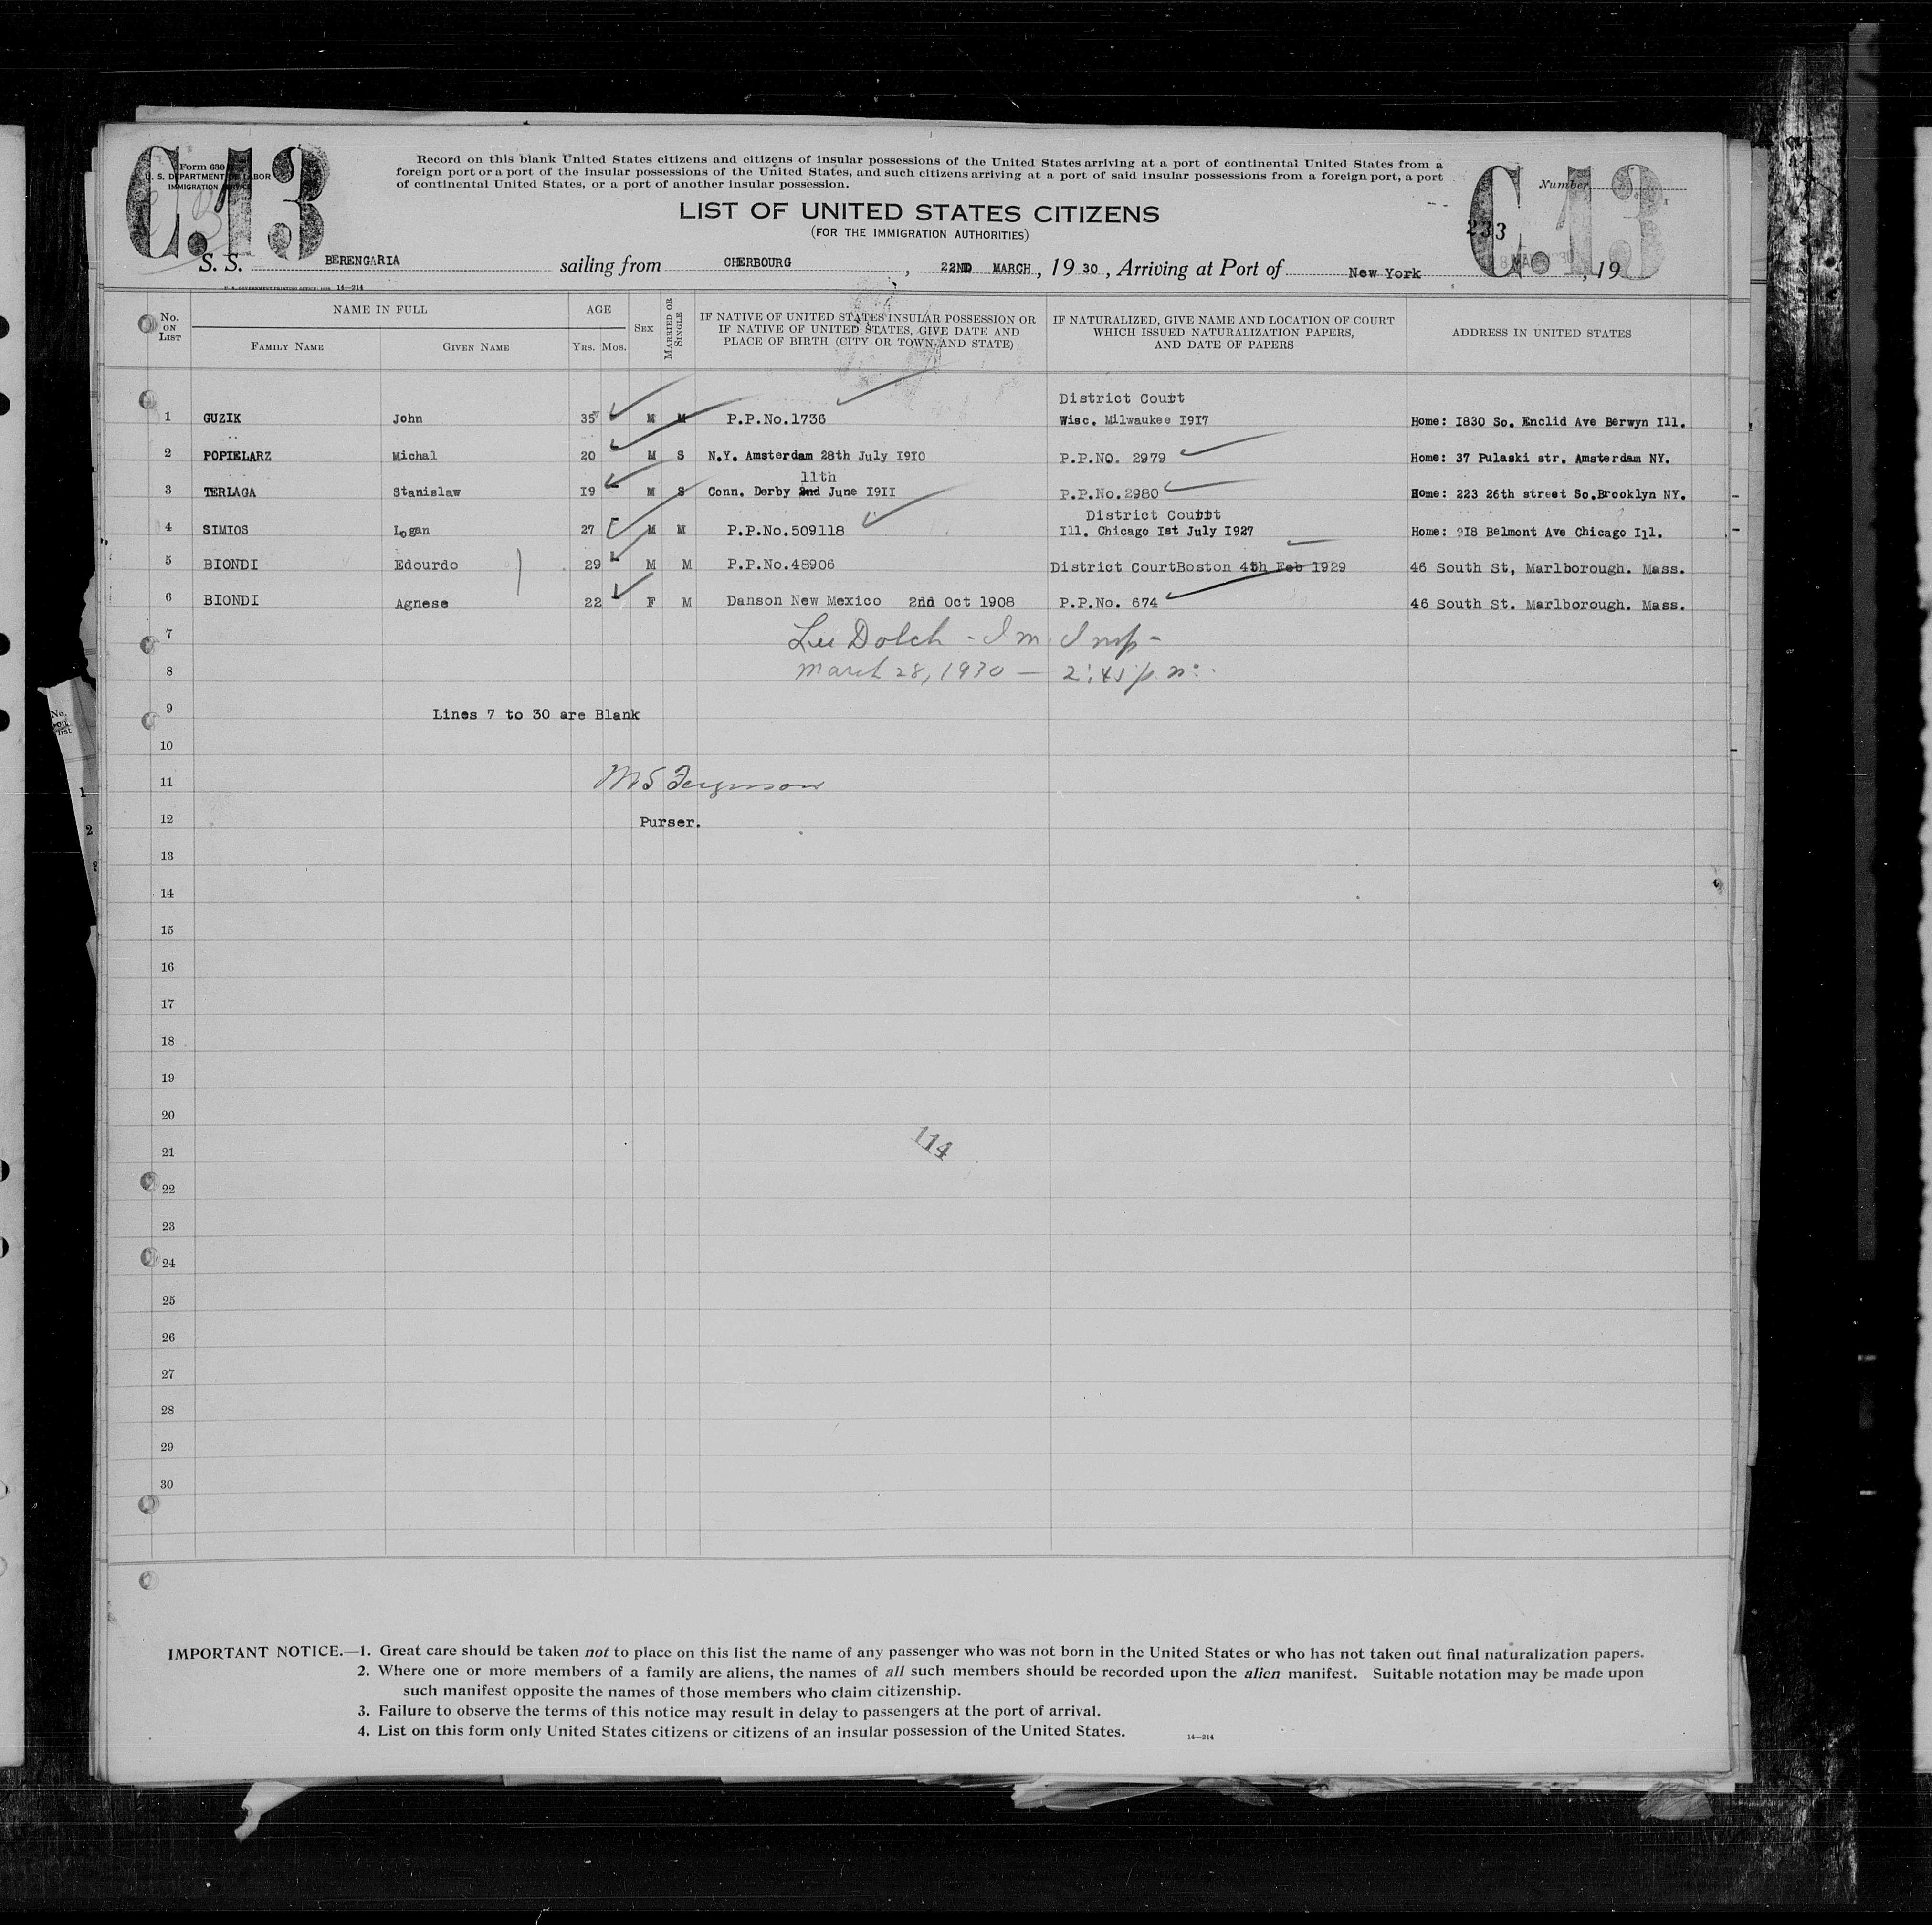 C.13
Form 630
U. S. DEPARTMENT OF LABOR
IMMIGRATION SERVICE
Record on this blank United States citizens and citizens of insular possessions of the United States arriving at a port of continental United States from a
foreign port or a port of the insular possessions of the United States, and such citizens arriving at a port of said insular possessions from a foreign port, a port
of continental United States, or a port of another insular possession.
Number
C.13
233
LIST OF UNITED STATES CITIZENS
(FOR THE IMMIGRATION AUTHORITIES)
S. S. BERENGARIA sailing from CHERBOURG, 22ND MARCH, 1930, Arriving at Port of New York, 19
14—214
No. ON LIST NAME IN FULL AGE SEX MARRIED OR SINGLE IF NATIVE OF UNITED STATES INSULAR POSSESSION OR IF NATIVE OF UNITED STATES, GIVE DATE AND PLACE OF BIRTH (CITY OR TOWN AND STATE) IF NATURALIZED, GIVE NAME AND LOCATION OF COURT WHICH ISSUED NATURALIZATION PAPERS, AND DATE OF PAPERS ADDRESS IN UNITED STATES
FAMILY NAME GIVEN NAME YRS. MOS.
District Court
1 GUZIK John 35 M M P.P.No.1736 Wisc. Milwaukee 1917 Home: 1830 So. Enclid Ave Berwyn Ill.
2 POPIELARZ Michal 20 M S N.Y. Amsterdam 28th July 1910 P.P.NO. 2979 Home: 37 Pulaski str. Amsterdam NY.
11th
3 TERLAGA Stanislaw 19 M S Conn. Derby 2nd June 1911 P.P.No.2980 Home: 223 26th street So.Brooklyn NY.
District Court
4 SIMIOS Logan 27 M M P.P.No.509118 Ill. Chicago 1st July 1927 Home: 918 Belmont Ave Chicago Ill.
5 BIONDI Edourdo 29 M M P.P.No.48906 District CourtBoston 4th Feb 1929 46 South St, Marlborough. Mass.
6 BIONDI Agnese 22 F M Danson New Mexico 2nd Oct 1908 P.P.No. 674 46 South St. Marlborough. Mass.
7 Lee Dolch - Im. Insp -
8 March 28, 1930 — 2:45 p.m.
9 Lines 7 to 30 are Blank
10
11 M S Ferguson
12 Purser.
13
14
15
16
17
18
19
20
21 114
22
23
24
25
26
27
28
29
30
IMPORTANT NOTICE.—1. Great care should be taken not to place on this list the name of any passenger who was not born in the United States or who has not taken out final naturalization papers.
2. Where one or more members of a family are aliens, the names of all such members should be recorded upon the alien manifest. Suitable notation may be made upon
such manifest opposite the names of those members who claim citizenship.
3. Failure to observe the terms of this notice may result in delay to passengers at the port of arrival.
4. List on this form only United States citizens or citizens of an insular possession of the United States.
14—214